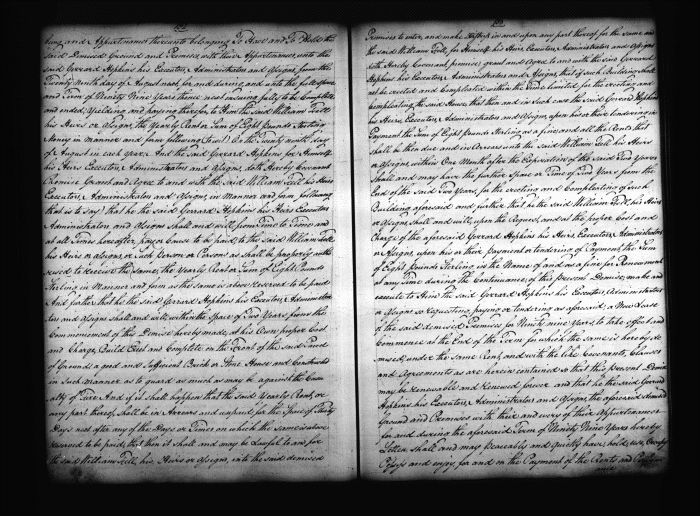 ting and Appurtenances thereunto belonging To Have and To Hold the
said Demised Ground and Premises with their Appurtenances unto the
said Gerrard Hopkins his Executors Administrators and Assigns from the
Twenty Ninth day of August next for and during and unto the full
and Term of Ninety Nine Years thence next ensuing fully to be Compleat
and ended, Yielding and paying therefor to Him the said William Fell
his Heirs or Assigns, the Yearly Rent or Sum of Eight Pounds Sterling
Money in manner and form following (Viz) On the Twenty ninth day
of August in each year, And the Said Gerrard Hopkins for Himself
his Heirs Executors Administrators and Assigns, doth Hereby Covenant
Promise Grant and Agree to and with the said William Fell his Heirs
Executors Administrators and Assigns, in Manner and form following
that is to Say, that he the said Gerrard Hopkins his Heirs Executors
Administrators and Assigns Shall and will from Time to Time and
at all Times hereafter, pay or Cause to be paid, to the said William Fell
his Heirs or Assigns, or Such Person or Persons as shall be properly autho
rized to Receive the Same, the Yearly Rent or Sum of Eight Pounds
Sterling in Manner and form as the same is above reserved to be paid
And further that he the said Gerrard Hopkins his Executors Administra
tors and Assigns shall and will within the Space of Two Years from the
Commencement of this Demise hereby made, at his Own proper Cost
and Charge, Build Erect and Complete on the Front of the said
of Ground, a good and Sufficient Brick or Stone House and Constructed
in Such a manner as to guard as much as may be against the Casu
alty of Fire And if it shall happen that the said Yearly Rent, or
any part thereof, shall be in Arrears and unpaid for the Space of Thirty
Days next after any of the Days or Times on which the Same is above
reserved to be paid, that then it shall and may be Lawful to and for
the said William Fell, his Heirs or Assigns, into the said demised
Premises to enter, and make distress in and upon any part thereof for the same and
the said William Fell, for Himself his Heirs Executors Administrators and Assigns
doth Hereby Covenant, promise, grant and Agree to and with the said Gerrard
Hopkins his Executors Administrators and Assigns, that if such Building shall
not be erected and Compleated within the Time Limited, for the erecting and
Compleating the said House, that then and in such case the said Gerrard Hopkins
his Heirs Executors Administrators and Assigns upon his or their tendering in
Payment the Sum of Eight Pounds Sterling as a fine, and all the Rents that
shall be then due and in Arrears unto the said William Fell his Heirs
or Assigns, within One Month after the Expiration of the said Two Years
shall and may have the further Space or Time of Two Years from the
End of the said Two Years, for the erecting and Compleating of such
Building aforesaid and further that he the said William Fell, his Heirs
or Assigns Shall and will, upon the Request, and at the proper Cost and
Charge of the aforesaid Gerrard Hopkins his Heirs Executors Administrators
or Assigns, upon his or their Payment or tendering of Payment, the Sum
of Eight Pounds Sterling in the Name of and as a fine for Renewment
at any time during the Continuance of this present Demise, make and
execute to Him the said Gerrard Hopkins his Executors Administrators
or Assigns so requesting, paying or tendering as aforesaid, a New Lease
of the said demised Premises for Ninety nine years, to take effect and
Commence at the End of the Term for which the same is hereby de
mised, under the Same Rent, and with the like Covenants, Clauses
and Agreements as are herein contained so that this present Demise
may be renewable and renewed forever. and that he the said Gerrard
Hopkins his Executors Administrators and Assigns the aforesaid demised
Ground and Premises with their and every of their Appurtenances
for and during the aforesaid Term of Ninety Nine Years hereby
Letten shall and may peaceably and quietly have, hold, use, Occupy
Possess and enjoy, for and on the Payment of the Rents and